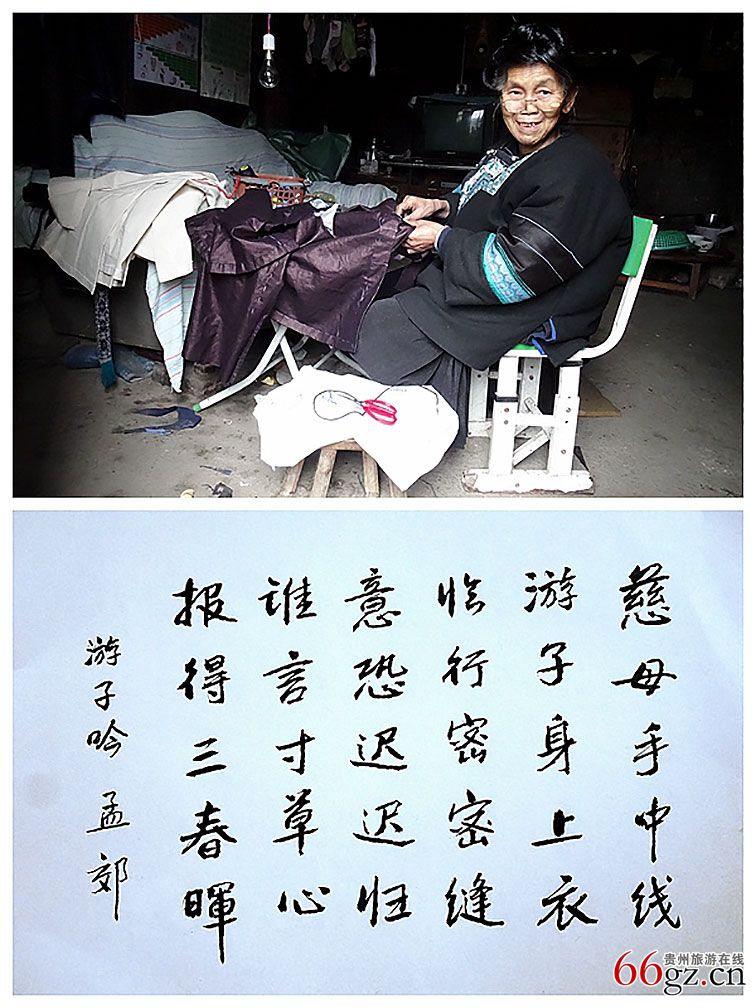 慈母手中线
游子身上衣
临行密密缝
意恐迟迟归
谁言寸草心
报得三春暉
游子吟 孟郊
贵州旅游在线
66gz.cn